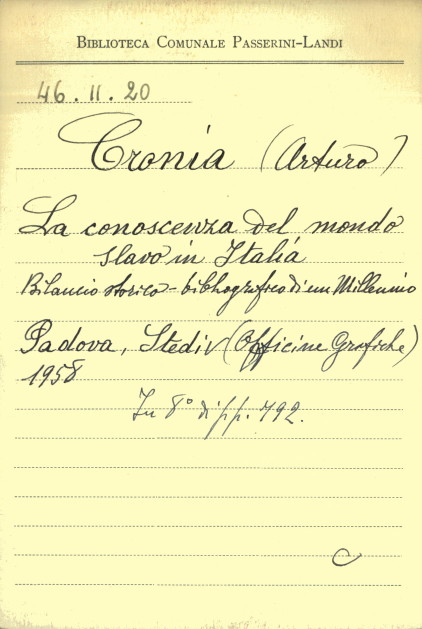 BIBLIOTECA COMUNALE PASSERINI-LANDI
46.11.20
Cronia (Arturo)
La conoscenza del mondo
slavo in Italia
Bilancio storico - bibliografico di un Millennio
Padova, Stediv (Officine Grafiche)
1958
In 8° di pp. 792.
C